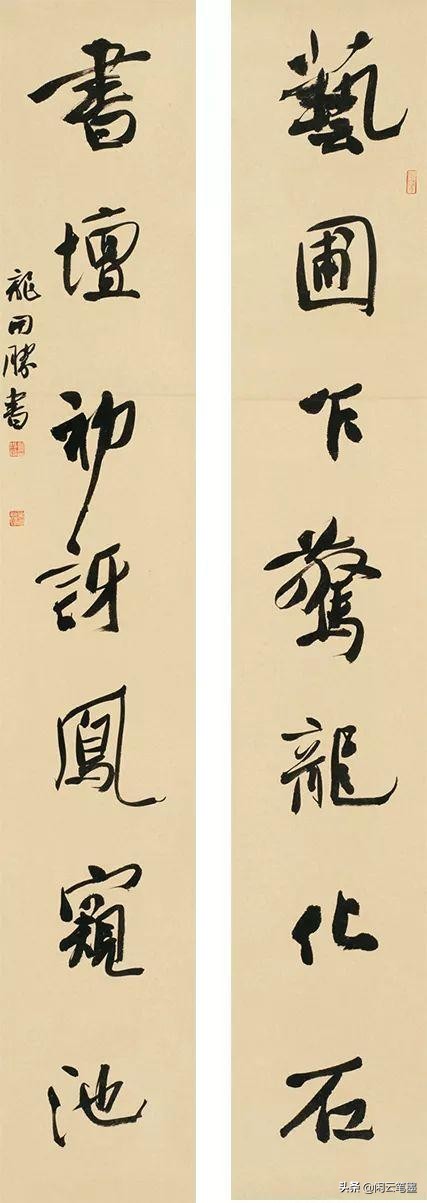 藝圃乍驚龍化石
書壇初訝鳳窺池
龍開勝書
头条 @闲云笔墨